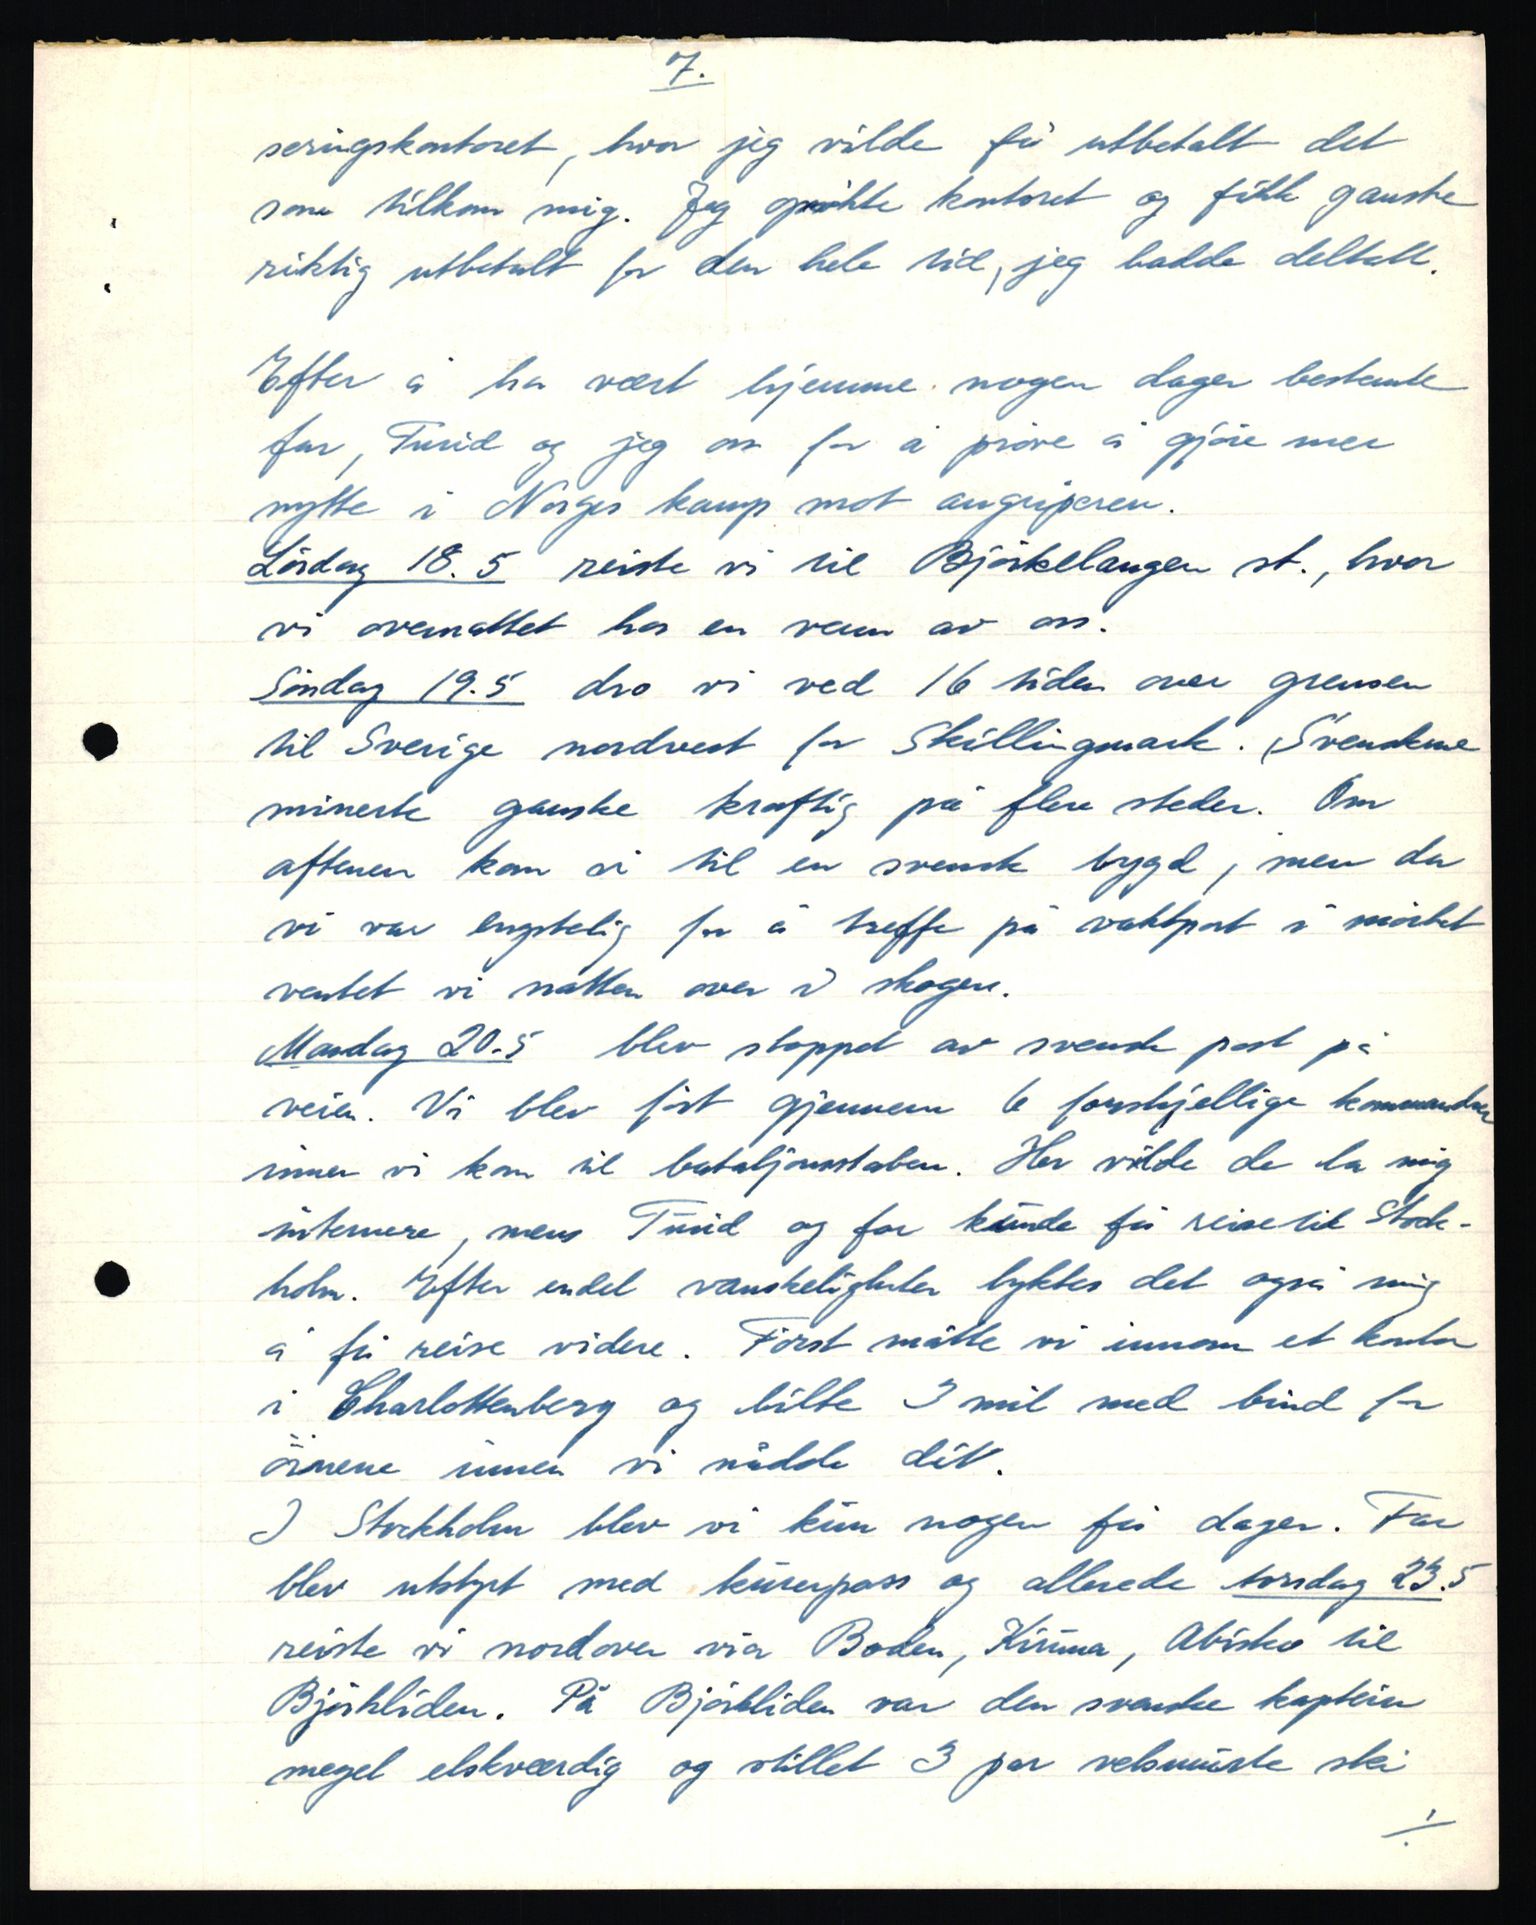 7.
seringskontoret, hvor jeg vilde få utbetalt det
som tilkom mig. Jeg opsökte kontoret og fikk ganske
riktig utbetalt for den hele tid, jeg hadde deltatt.
Efter å ha vært hjemme nogen dager bestemte
far, Turid og jeg oss for å pröve å gjöre mer
nytte i Norges kamp mot angriperen.
Lördag 18.5 reiste vi til Björkelangen st., hvor
vi overnattet hos en venn av oss.
Söndag 19.5 dro vi ved 16 tiden over grensen
til Sverige nordvest for Skillingmark. Svenskene
minerte ganske kraftig på flere steder. Om
aftenen kom vi til en svensk bygd, men da
vi var engstelig for å treffe på vaktpost i mörket
ventet vi natten over i skogen.
Mandag 20.5 blev stoppet av svensk post på
veien. Vi blev fört gjennem 6 forskjellige kommandoer
innen vi kom til bataljonsstaben. Her vilde de la mig
internere, mens Turid og far kunde få reise til Stock-
holm. Efter endel vanskeligheter lyktes det også mig
å få reise videre. Först måtte vi innom et kontor
i Charlottenberg og bilte 3 mil med bind for
öinene innen vi nådde dit.
I Stockholm blev vi kun nogen få dager. Far
blev utstyrt med kurerpass og allerede torsdag 23.5
reiste vi nordover via Boden, Kiruna, Abisko til
Björkliden. På Björkliden var den svenske kaptein
meget elskværdig og stillet 3 par velsmurte ski
./.